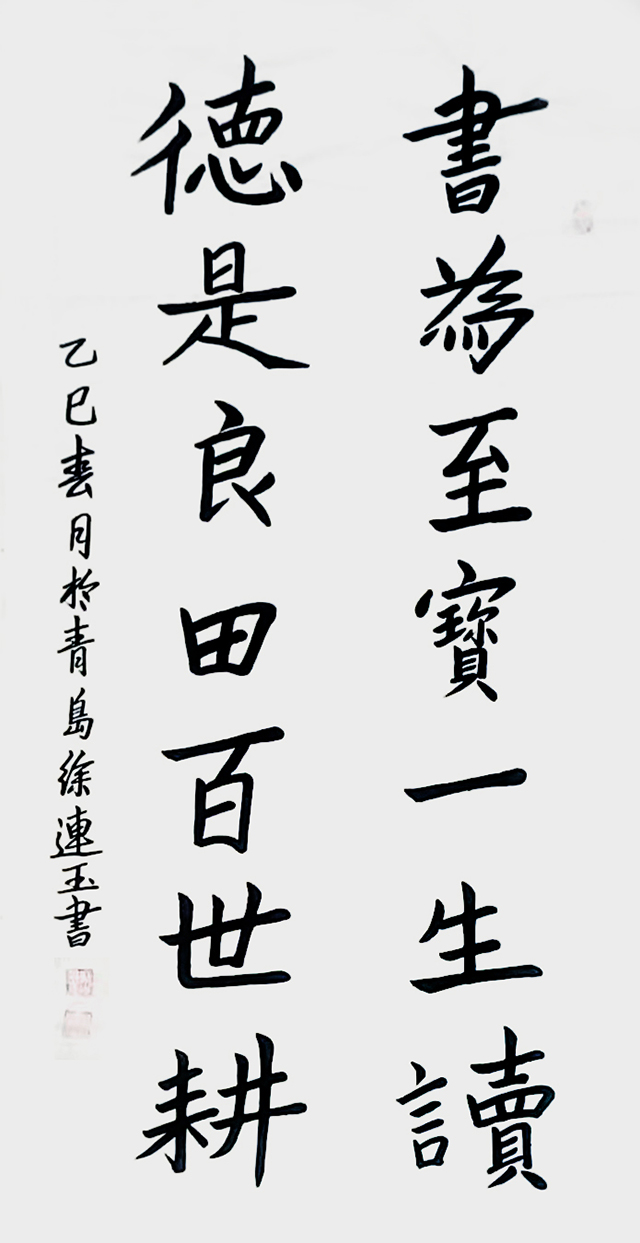 書為至寳一生讀
徳是良田百世耕
乙巳春月於青島徐連玉書